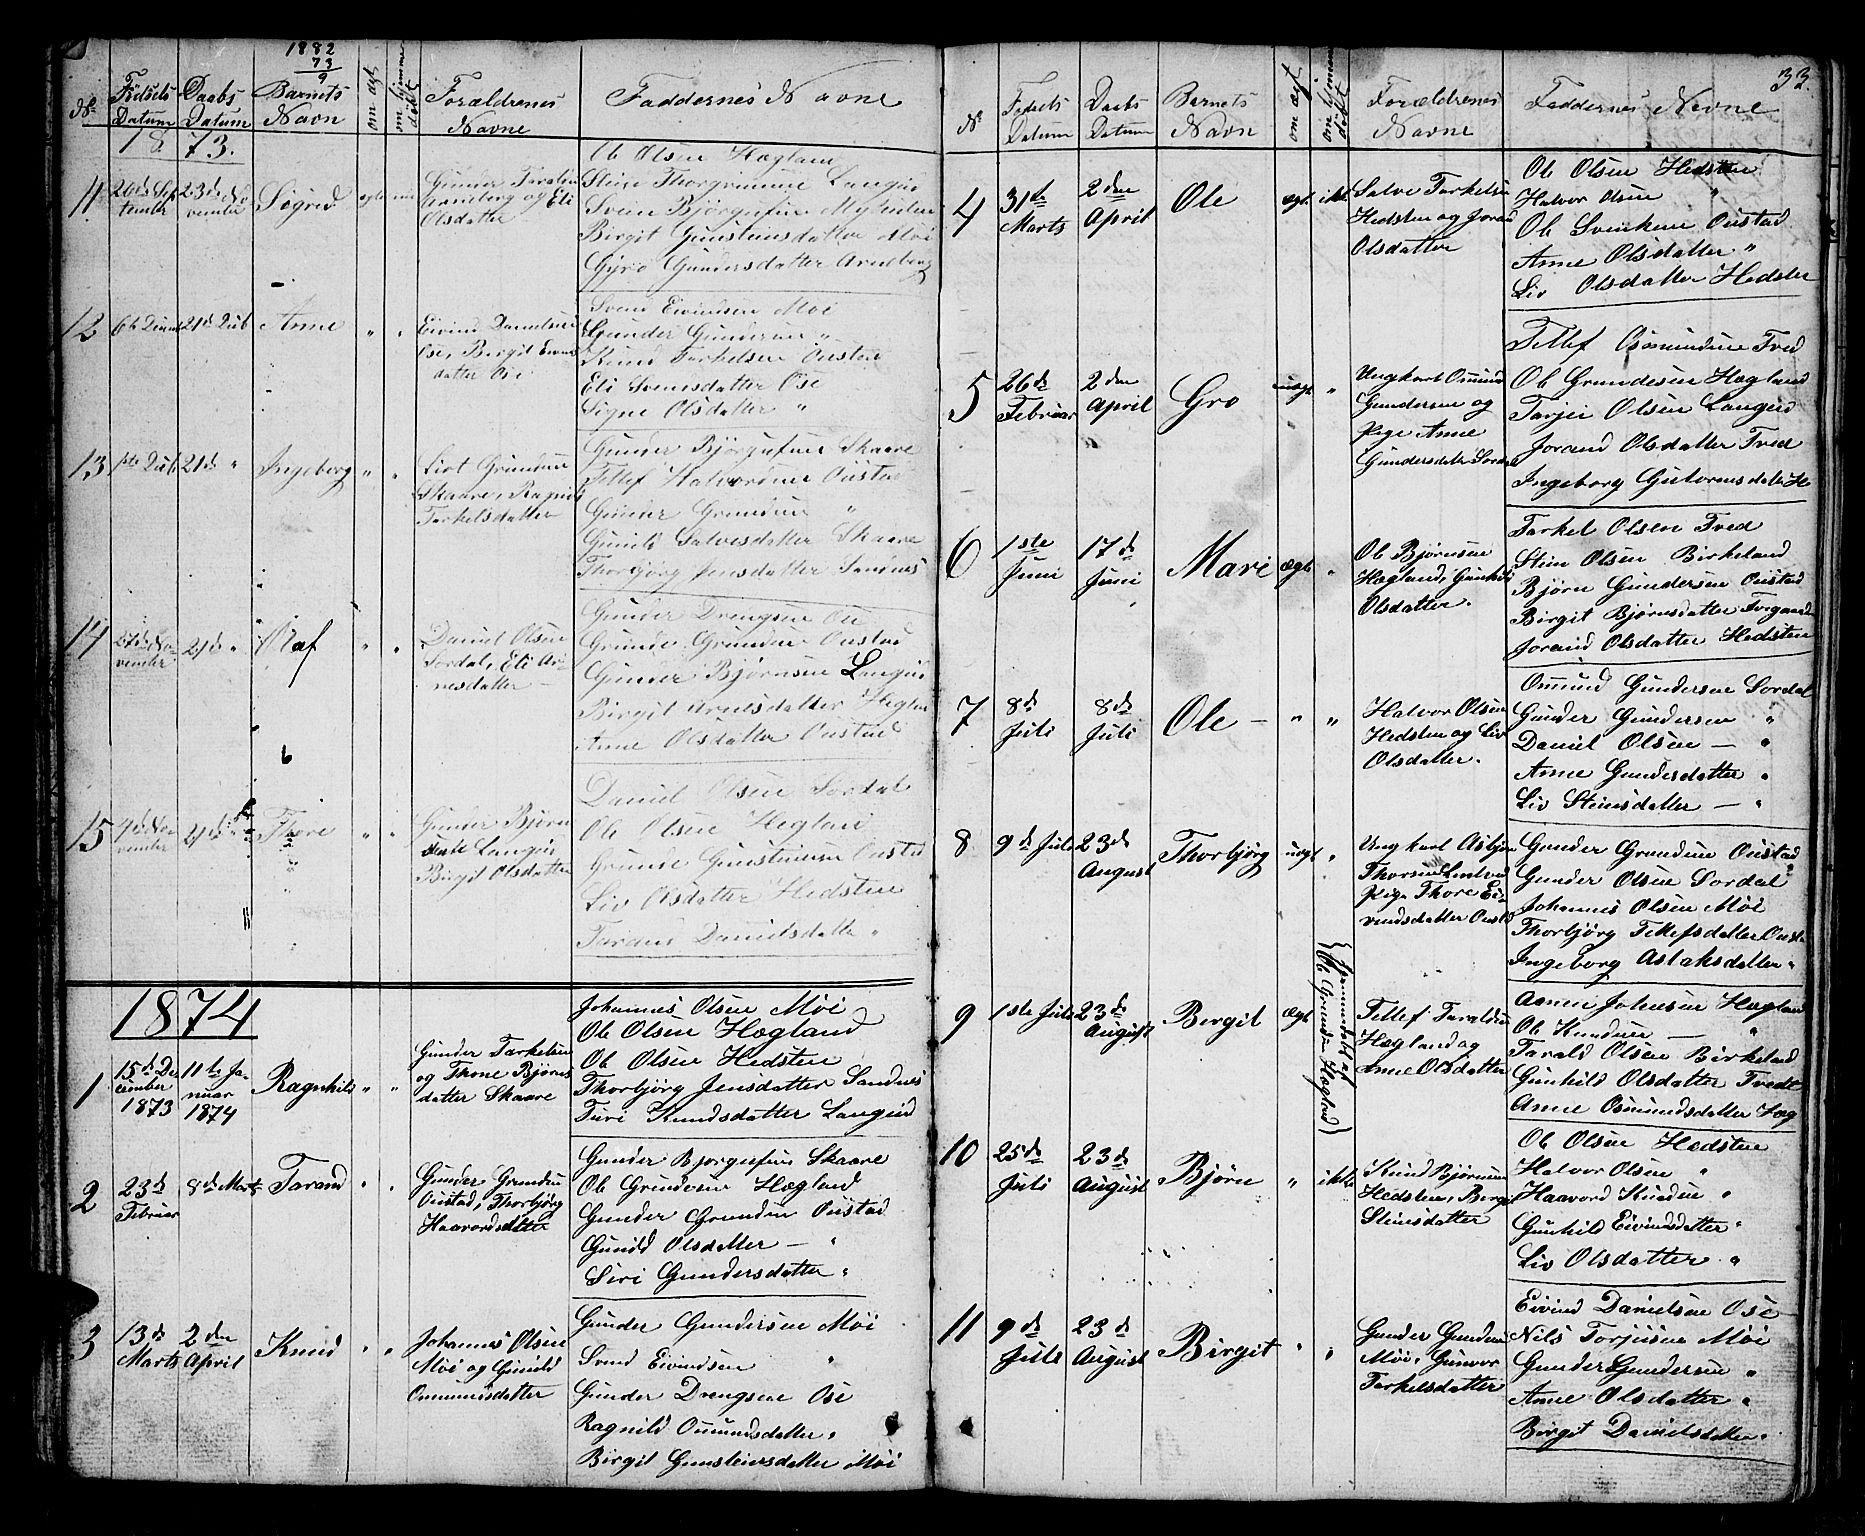 1882
73
9
No. Födsels Datum Daabs Datum Barnets Navn om ægt om hjemmedöbt Forældrenes Navne Faddernes Navne
1873.
11 26de September 23de November Sögred ægte
Gunder Taraldsen
Arneberg og Eli
Olsdatter
Ole Olsen Hægland
Stein Thorgrimsen Langeid
Svein Björgufsen
Birgit Gunsteinsdatter Möi
Gyro Gundersdatter Arneberg
12 21de Dub Anne " "
Eivind Danielsen
Ose, Birgit
datter Ose
Svend Eivindsen Möi
Gunder Gundersen "
Knud Tarkelsen Oustad
Eli Svensdatter Ose
Signe Olsdatter "
13 1ste Dub 21de " Ingeborg " "
Livt Grundsen
Skaare, Ragnild
Tarkelsdatter
Gunder Björgufsen Skaare
Tellef Halvordsen Oustad
Gunder Grundsen "
Gunild Salvesdatter Skaare
Thorbjörg Jensdatter Sandnes
14 November 21de " Olaf " "
Daniel Olsen
Sordal, Eli Ar-
nesdatter —
Gunder Drengsen Ose
Grunde Grundsen Oustad
Gunder Björnsen Langeid
Birgit Arnesdatter Hegland
Anne Olsdatter Oustad
15 November 21de " Thore " "
Gunder Björn
Langeid
Birgit Olsdatter
Daniel Olsen Sordal
Ole Olsen Hegland
Grunde Gunsteinsen Oustad
Liv Olsdatter Hedsten
Taran Danielsdatter "
1874
1 15de December 1873 11te Januar 1874 Ragnhild " "
Gunder Tarkelsen
og Thone Björns
datter Skaare
Johannes Olsen Möi
Ole Olsen Hægland
Ole Olsen Hedsten
Thorbjörg Jensdatter Sandnes
Turi Knudsdatter Langeid
2 23de Februar 8de Marts Tarand " "
Gunder Grundsen
Oustad, Thorbjörg
Haavordsdatter
Gunder Björgufsen Skaare
Ole Grundersen Hægland
Gunder Grundsen Oustad
Gunild Olsdatter — "
Siri Gundersdatter "
3 13de Marts 2den April Knud " "
Johannes Olsen
Möi og Gunild
Ommundsdatter
Gunder Gundersen Möi
Svend Eivindsen "
Gunder Drengsen Ose
Ragnild Ommundsdatter "
Birgit Gunsteinsdatter Möi
33.
No. Födsels Datum Daabs Datum Barnets Navn om ægt om hjemmedöbt Forældrenes Navne Faddernes Navne
4 31te Marts 2den April Ole ægte ikke
Salve Tarkelsen
Hedsten og Jorand
Olsdatter
Ole Olsen Hedsten
Halvor Olsen "
Ole Svenken Oustad
Anne Olsdatter "
Liv Olsdatter Hedsten
5 26de Februar 2den April Gro uægte "
Ungkarl Omund
Gundersen og
Pige Anne
Gundersdatter Sordal
Tellef Osmundsen Tved
Ole Grundesen Hægland
Tarjei Olsen Langeid
Jorand Olsdatter Tved
Ingeborg Gutormsdatter H
6 1ste Juni 17de Juni Mari ægte "
Ole Björnsen
Hægland, Gunhild
Olsdatter.
Tarkel Olsen Tved
Stein Olsen Birkeland
Björn Gundersen Oustad
Birgit Björnsdatter
Jorand Olsdatter Hedsten
7 8de Juli 8de Juli Ole — " "
Halvor Olsen
Hedsten og Liv
Olsdatter.
Omund Gundersen Sordal
Gunder Gundersen "
Daniel Olsen — "
Anne Gundersdatter "
Liv Steinsdatter — "
8 9de Juli 23de August Thorbjörg uægt "
Ungkarl Asbjörn
Thorsen
Pige Thore Ei-
vindsdatter Oustad
Gunder Grundsen Oustad
Gunder Olsen Sordal
Johannes Olsen Möi
Thorbjörg Tellefsdatter Oustad
Ingeborg Aslaksdatter "
9 1ste Juli 23de August Bergit Ægt
{Hjemmedöbt af
Ole Grundsen Hægland}
Tellef Taraldsen
Hægland og
Anne Olsdatter
Asmen Johnsen Hægland
Ole Knudsen — "
Tarald Olsen Birkeland
Gunhild Olsdatter Tvedt
Anne Osmundsdatter Hæg
10 25de Juli 23de August Björn " ikke
Knud Björnsen
Hedsten, Bergit
Steinsdatter
Ole Olsen Hedsten
Halvor Olsen "
Haavord Knudsen "
Gunhild Eivindsdatter "
Liv Olsdatter "
11 9de Juli 23de August Birgit " "
Gunder Gundersen
Möi, Gunvor
Tarkelsdatter
Eivind Danielsen Ose
Nils Torjusen Möi
Gunder Gundersen "
Anne Olsdatter "
Birgit Danielsdatter "